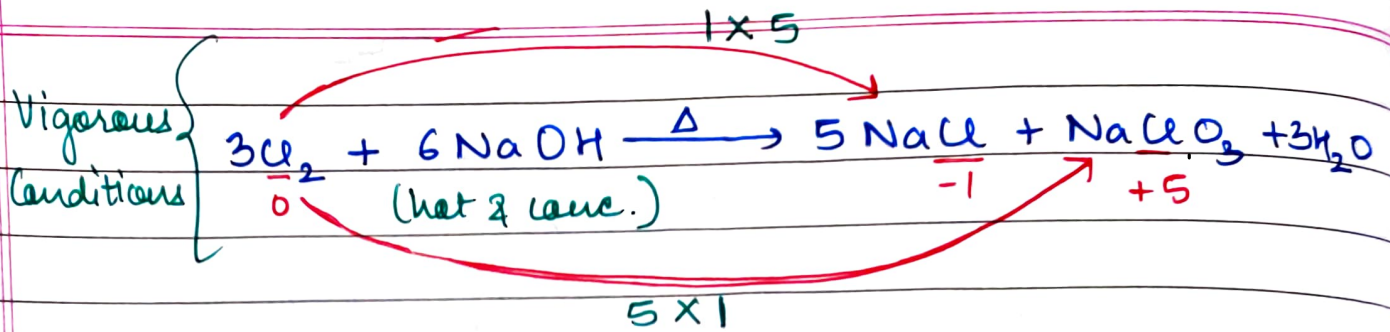 1 × 5
Vigorous Conditions { 3Cl₂ + 6 NaOH —Δ→ 5 NaCl + NaClO₃ + 3H₂O
0 (hot & conc.) -1 +5
5 × 1